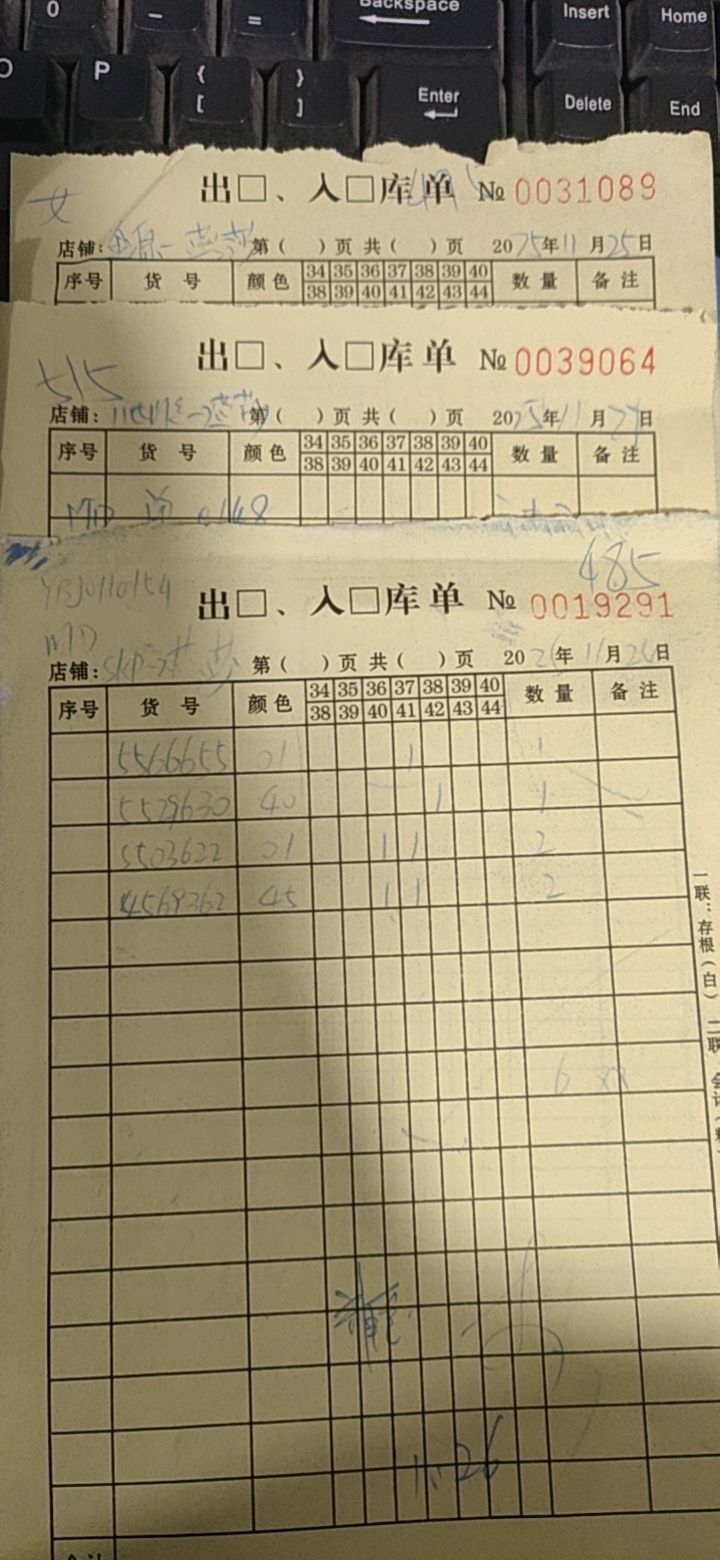 0 — = Backspace Insert Home
P { [ } ] Enter Delete End
出□、入□库单 № 0031089
女
店铺: 第( )页 共( )页 2025年11月25日
序号 货号 颜色 34 35 36 37 38 39 40 数量 备注
38 39 40 41 42 43 44
出□、入□库单 № 0039064
515
店铺: 第( )页 共( )页 2025年11月 日
序号 货号 颜色 34 35 36 37 38 39 40 数量 备注
38 39 40 41 42 43 44
MD 单 0148
485
YBJ0110154
出□、入□库单 № 0019291
MD
店铺: SKP- 莎 第( )页 共( )页 20 年11月26日
序号 货号 颜色 34 35 36 37 38 39 40 数量 备注
38 39 40 41 42 43 44
5566655 01 1 1
5529630 40 1 1
5503622 01 1 1 2
4569362 45 1 1 2
一联:存根(白) 二联
6
11.26
合计